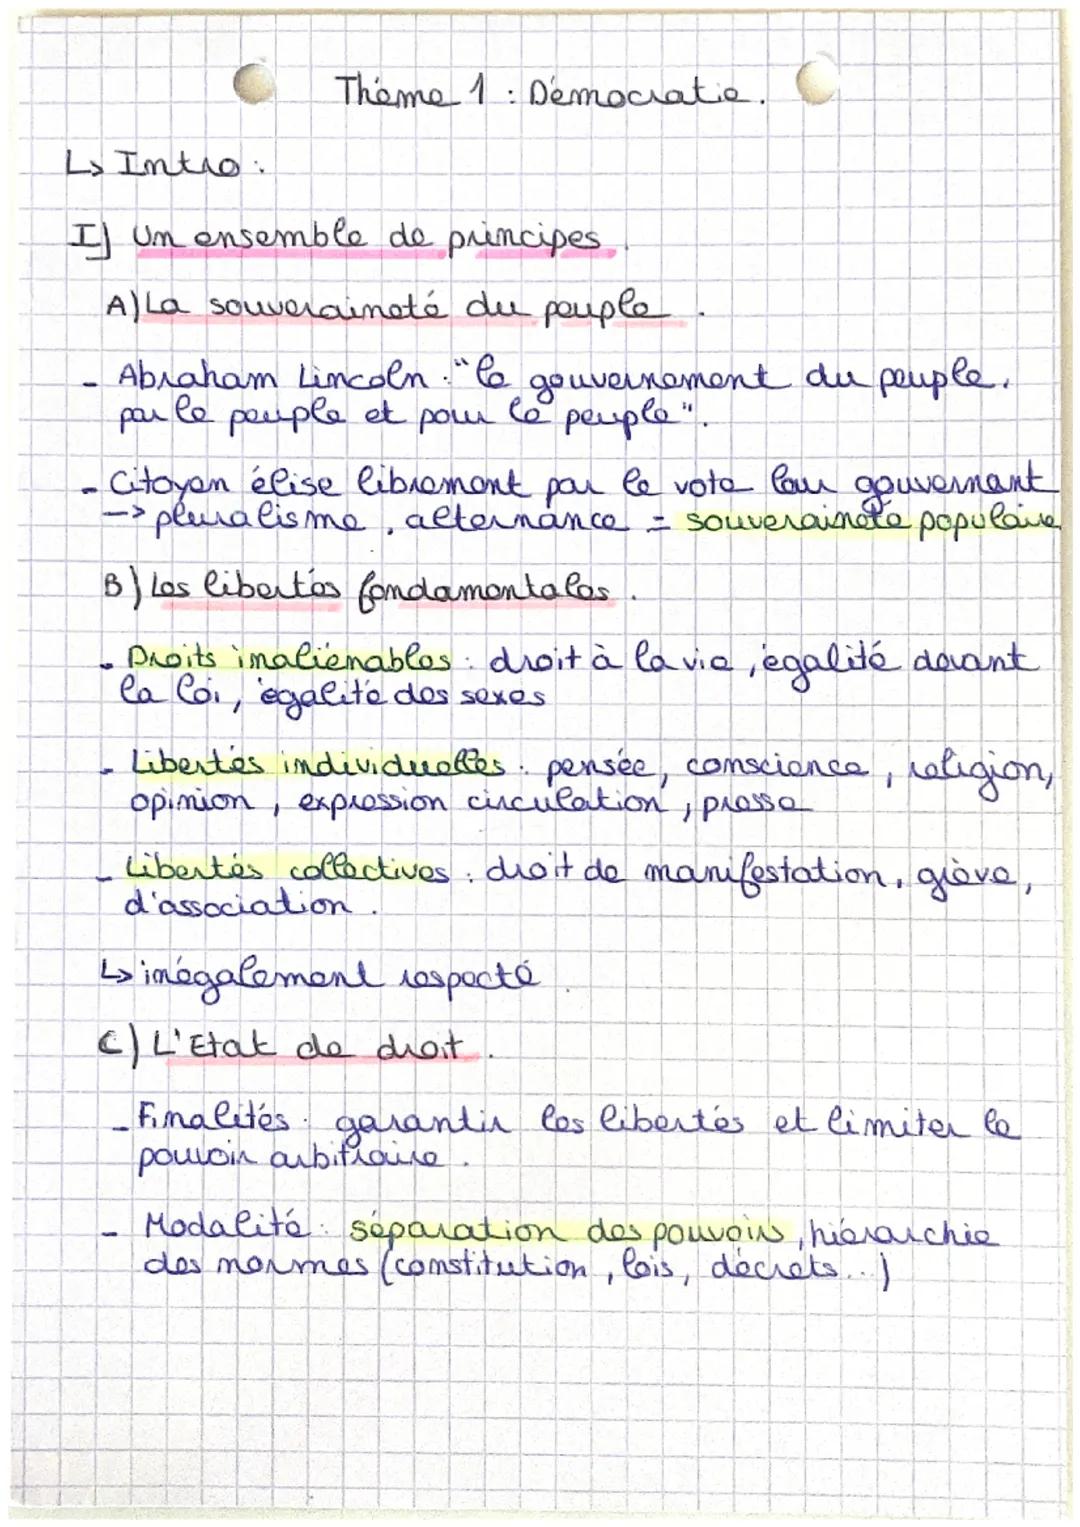 Thème 1 : Démocratie.
↳ Intro :
I] Un ensemble de principes.
A) La souveraineté du peuple.
- Abraham Lincoln : "le gouvernement du peuple,
par le peuple et pour le peuple".
- Citoyen élise librement par le vote leur gouvernant
-> pluralisme, alternance = souveraineté populaire
B) Les libertés fondamentales.
- Droits inaliénables : droit à la vie, égalité devant
la loi, égalité des sexes
- Libertés individuelles : pensée, conscience, religion,
opinion, expression circulation, presse
- Libertés collectives : droit de manifestation, grève,
d'association.
↳ inégalement respecté.
C) L'Etat de droit.
- Finalités : garantir les libertés et limiter le
pouvoir arbitraire.
- Modalité : séparation des pouvoirs, hiérarchie
des normes (constitution, lois, décrets...)